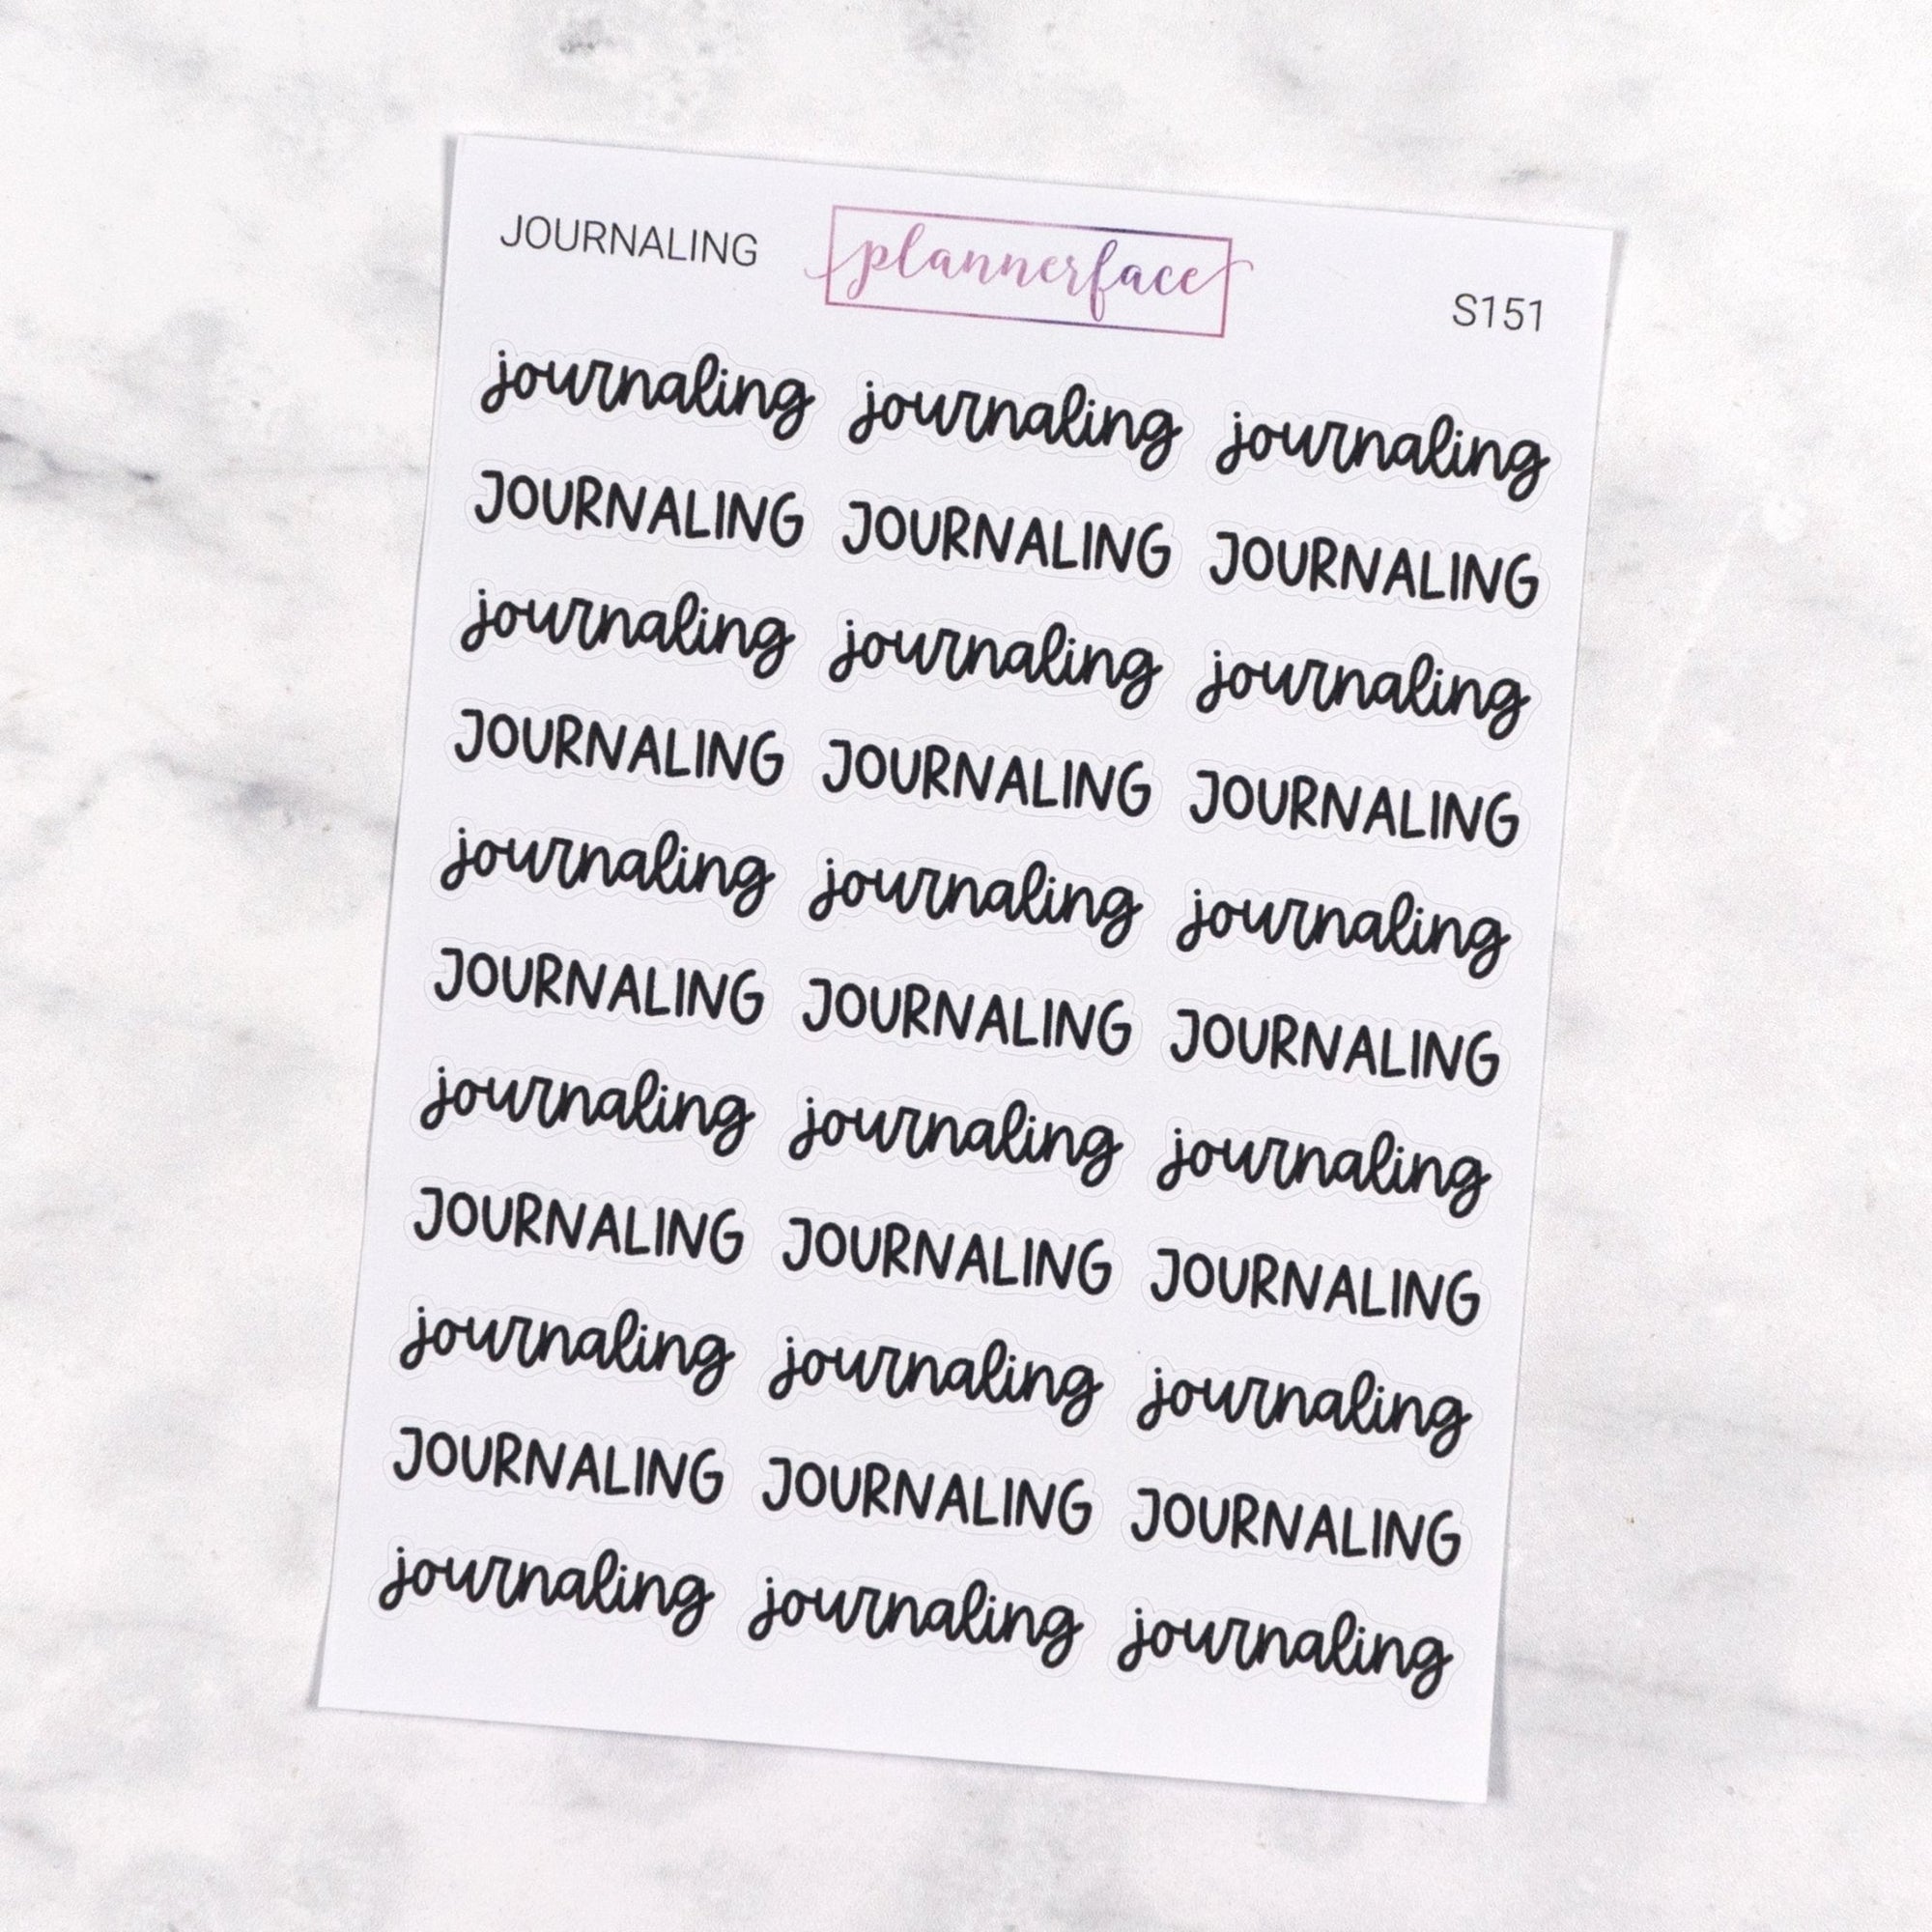 JOURNALING plannerface S151
journaling journaling journaling
JOURNALING JOURNALING JOURNALING
journaling journaling journaling
JOURNALING JOURNALING JOURNALING
journaling journaling journaling
JOURNALING JOURNALING JOURNALING
journaling journaling journaling
JOURNALING JOURNALING JOURNALING
journaling journaling journaling
JOURNALING JOURNALING JOURNALING
journaling journaling journaling